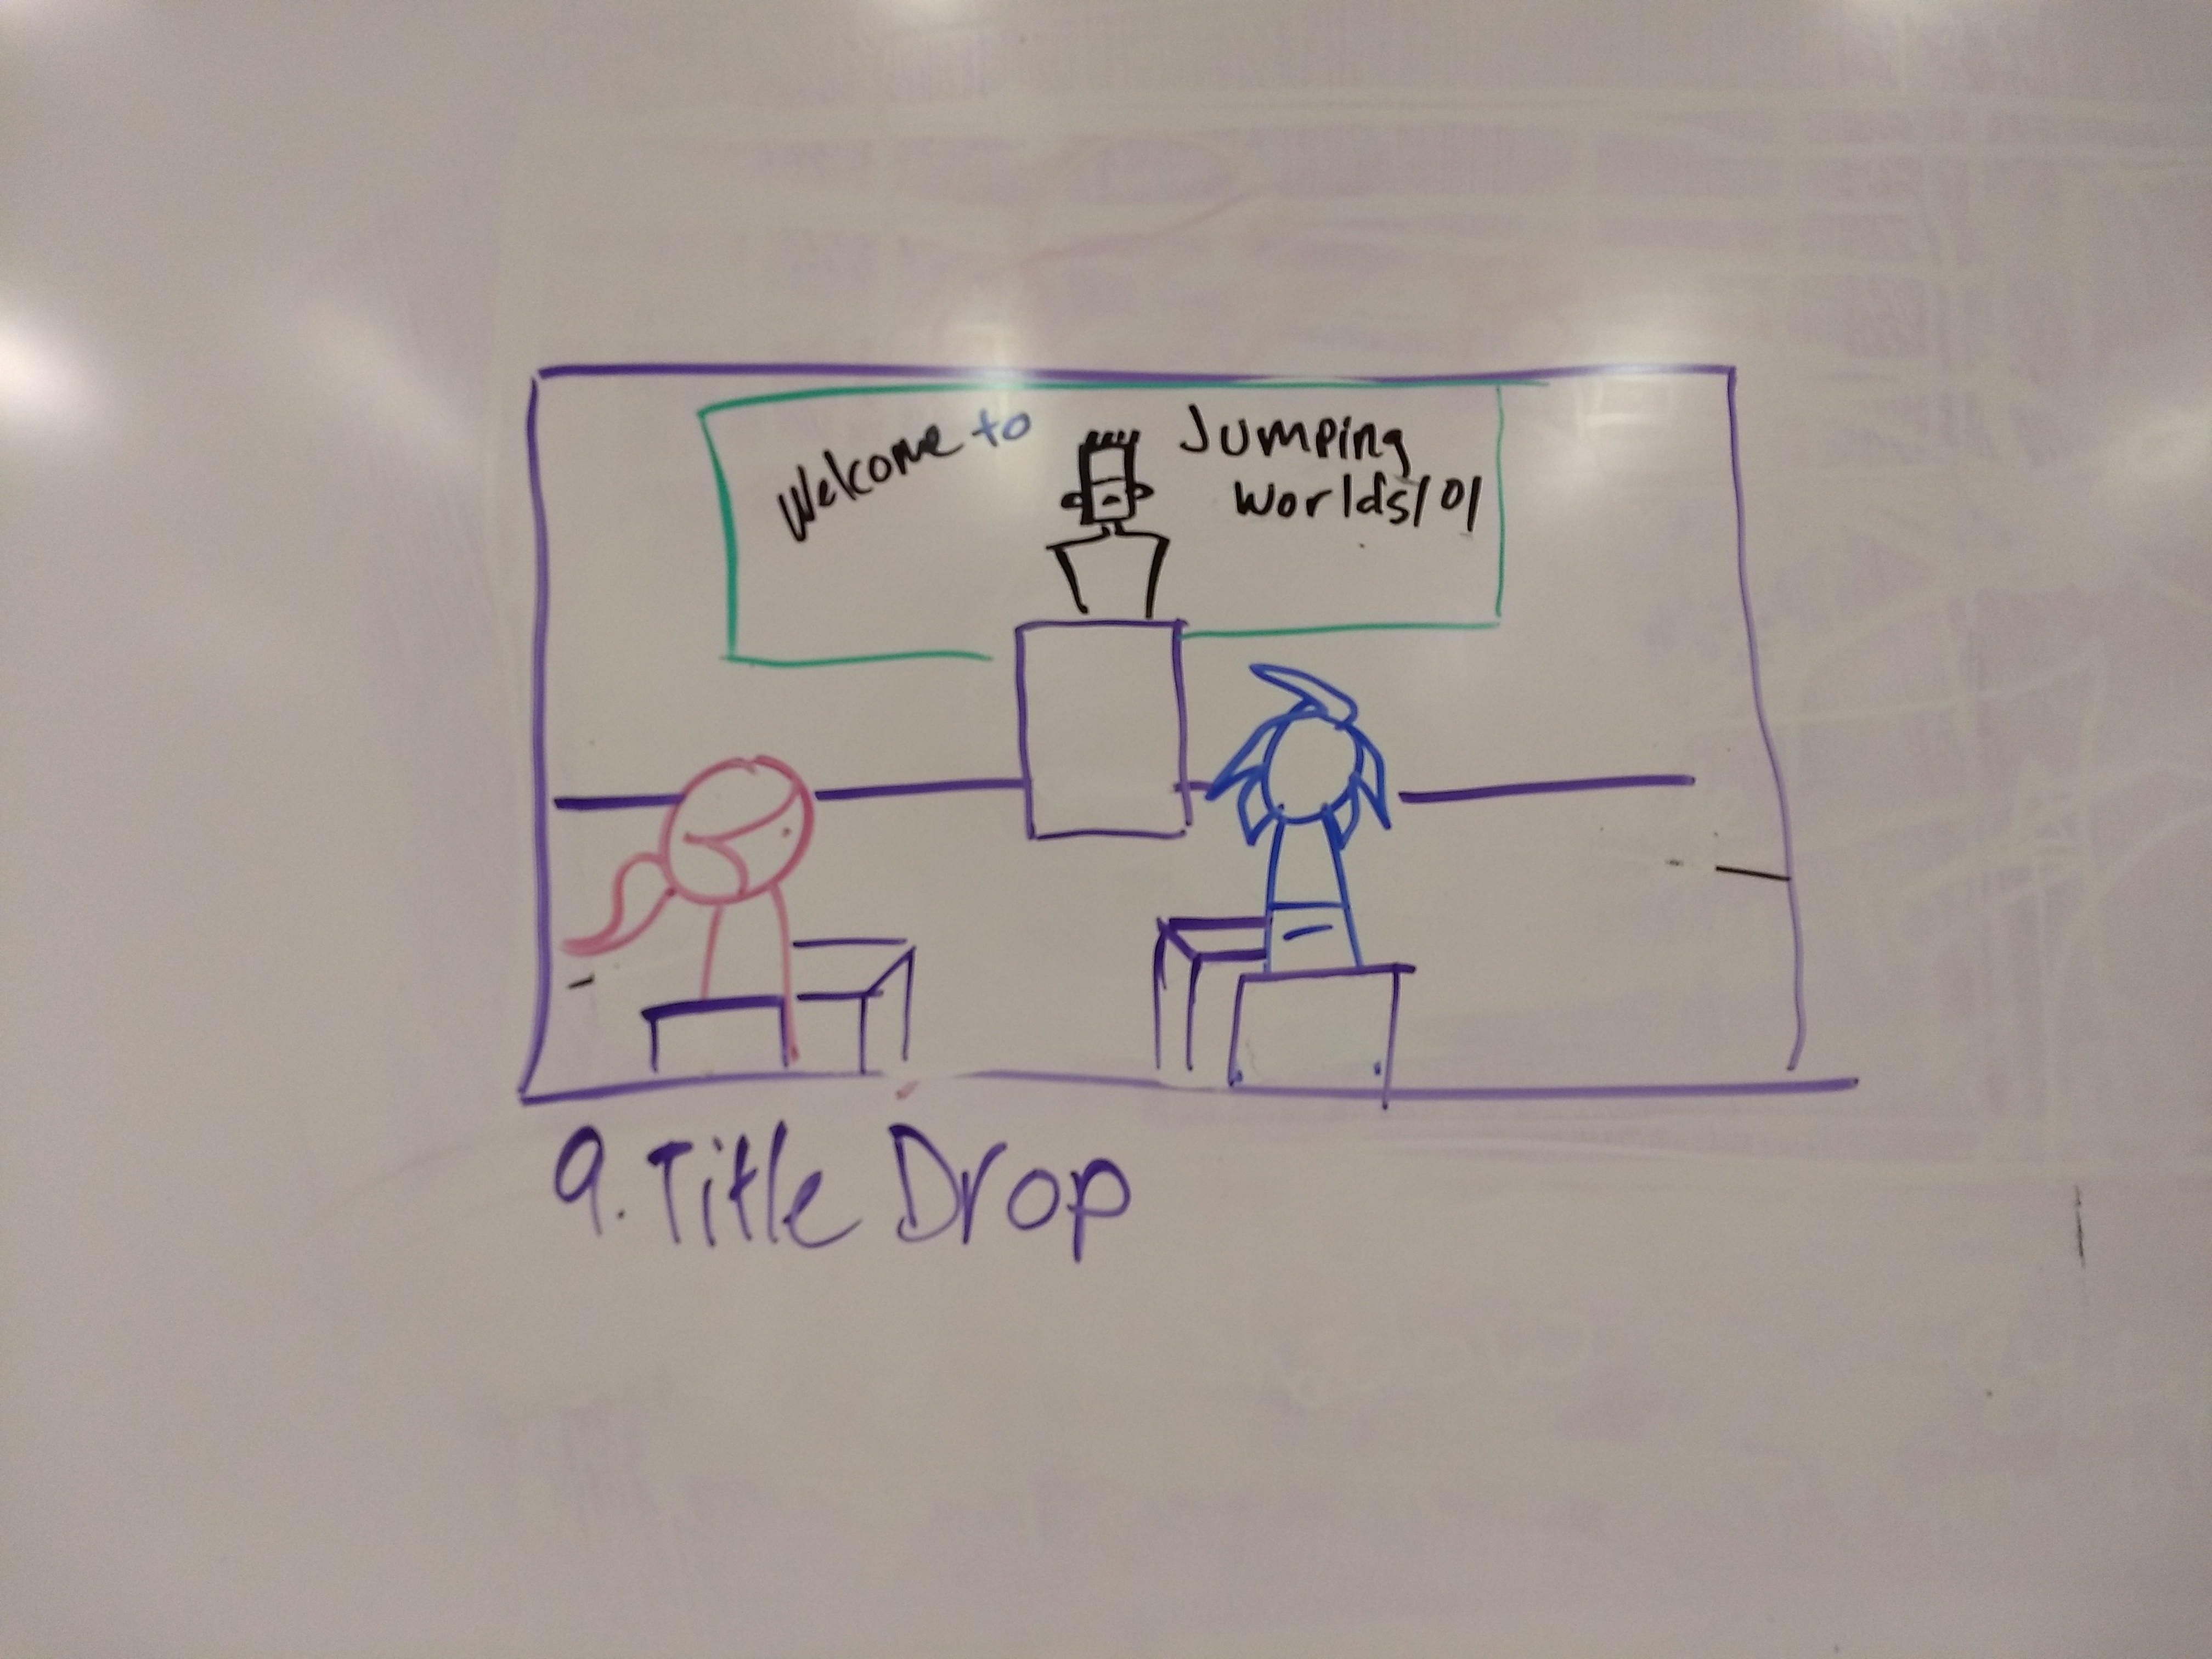 Welcome to
Jumping
Worlds 101
9. Title Drop